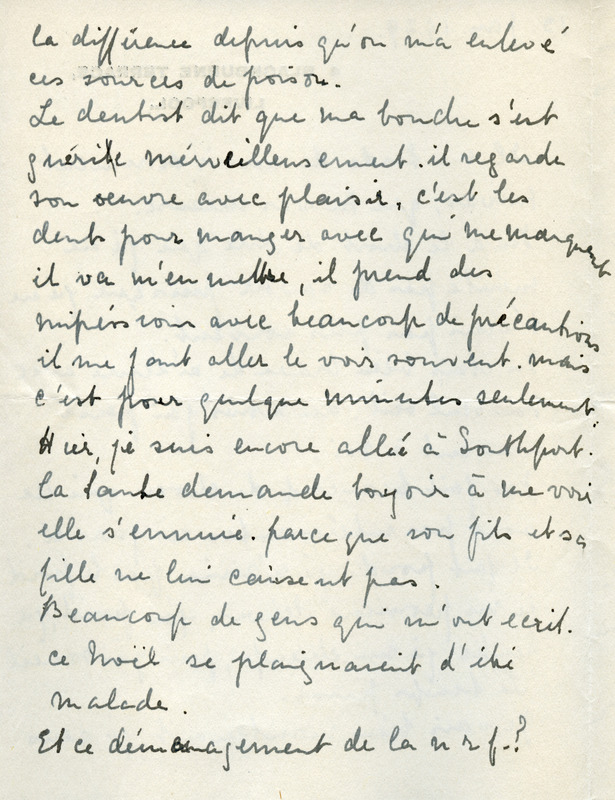 la différence depuis qu'on m'a enlevé
ces sources de poison.
Le dentist dit que ma bouche s'est
guérite mérveilleusement. il regarde
son oeuvre avec plaisir, c'est les
dents pour manger avec qui me marquent
il va m'en mettre, il prend des
avec beaucoup de précautions
il me faut aller le voir souvent. mais
c'est pour quelque minutes seulement.
Hier, je suis encore allée à Southport.
la tante demande à me voir
elle s'ennuie. parce que son fils et sa
fille ne lui causent pas.
Beaucoup de gens qui m'ont ecrit.
ce Noël se plaignaient d'été
malade.
Et ce démenagement de la n r f.?